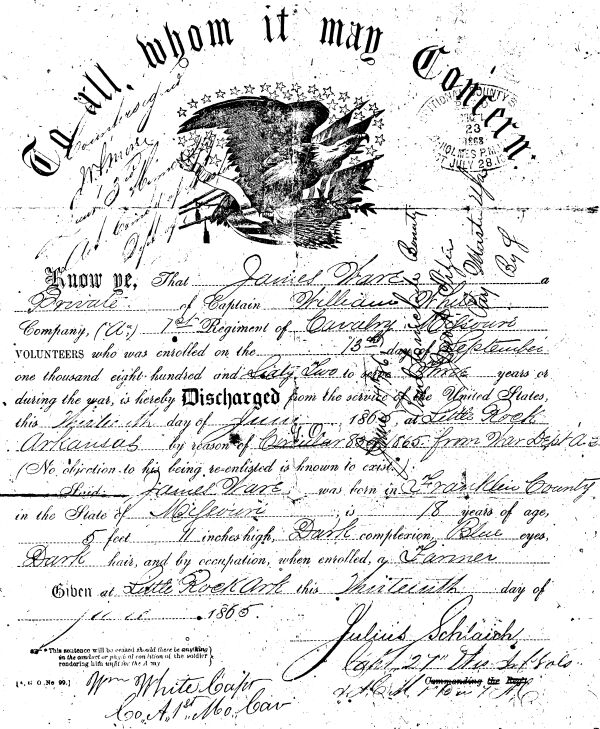 To all whom it may Concern.
Countersigned
23
1868
HOLMES P.M.
JULY 28.
Know ye, That James Ware a
Private of Captain William White
Company, (A.) 1st Regiment of Cavalry Missouri
VOLUNTEERS who was enrolled on the 13th day of September
one thousand eight hundred and Sixty Two to serve Three years or
during the war, is hereby Discharged from the service of the United States,
this Thirteenth day of June 1865, at Little Rock
Arkansas by reason of Circular 1865 from War Dept
(No objection to his being re-enlisted is known to exist.)
Said James Ware was born in Franklin County
in the State of Missouri is 18 years of age,
5 feet 11 inches high, Dark complexion, Blue eyes,
Dark hair, and by occupation, when enrolled, a Farmer
Given at Little Rock Ark this Thirteenth day of
June 1865.
Julius Schlaich
Capt. 27" Wis. Inf Vols
Commanding the Reg't.
*This sentence will be erased should there be anything
in the conduct or physical condition of the soldier
rendering him unfit for the Army
[A. G. O. No 99.]
Wm White Capt
Co. A. 1st Mo. Cav